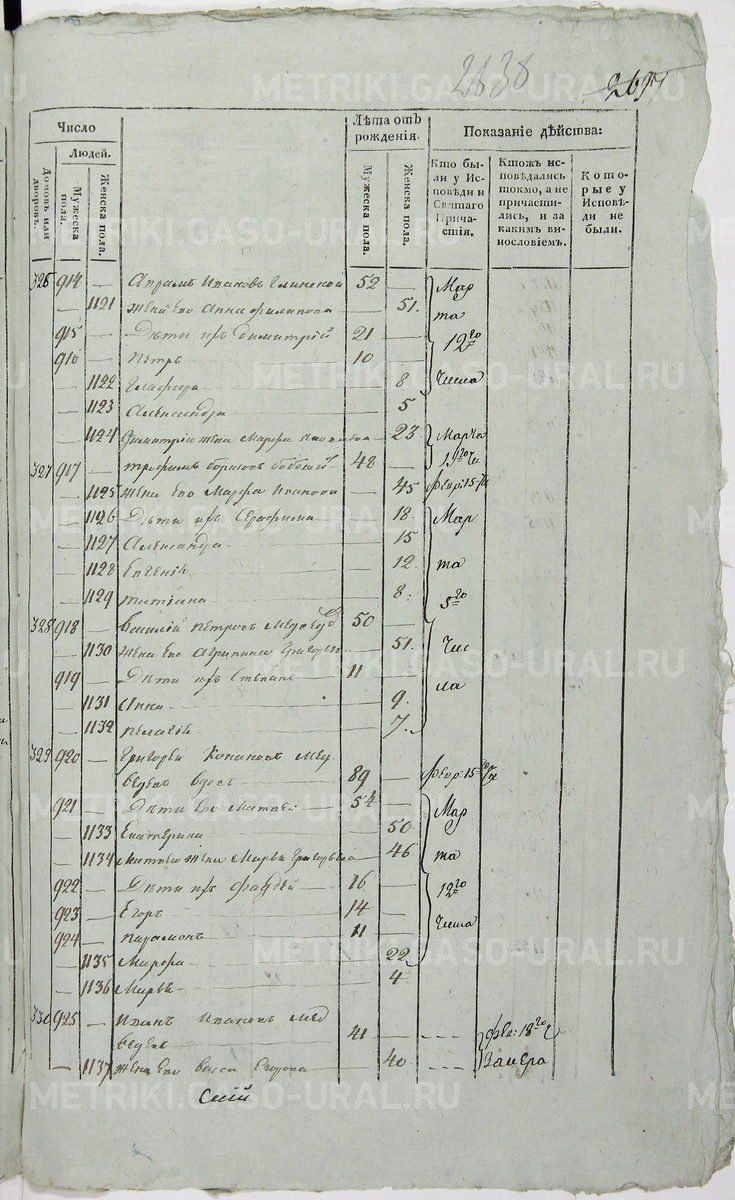 2638
2697
Число
Людей.
Домовъ или дворовъ.
Мужеска пола.
Женска пола.
Лѣта отъ рожденія.
Мужеска пола.
Женска пола.
Показаніе дѣйства:
Кто бы-
ли у Ис-
повѣди и
Святаго
Прича-
стія.
Ктожъ ис-
повѣдались
токмо, а не
причасти-
лись, и за
какимъ ви-
нословіемъ.
Кото-
рые у
Исповѣ-
ди не
были.
326 914 — Ивановъ 52 — Мар
— 1121 жена его Анна Филипова — 51. та
915 — Дѣти ихъ Димитрій 21 — 12го
916 — Петръ 10 —
— 1122 Глафира — 8 Числа
— 1123 Александра — 5
— 1124 Димитрія жена Марфа — 23 Марта
327 917 — Трофимъ Борисовъ 48 —
— 1125 жена его Марфа Иванова — 45 Февр: 15
— 1126 Дѣти ихъ Серафима — 18. Мар
— 1127 Александра — 15
— 1128 Евгенія — 12. та
— 1129 Татіана — 8. 5го
328 918 — Василій Петровъ 50 —
— 1130 жена его Агрипина — 51. Чис
919 — Дѣти ихъ Степанъ 11 — ла
— 1131 Анна — 9.
— 1132 Пелагія — 7.
329 920 — Григорей Мед
ведевъ вдовъ 89 — Февр: 15го
921 — Дѣти его Матвей 54 — Мар
— 1133 Екатерина — 50
— 1134 Матвея жена Марья Григорьева — 46 та
922 — Дѣти ихъ Фаддей 16 — 12го
923 — Егоръ 14 —
924 — Парамонъ 11 — Числа
— 1135 Марфа — 22
— 1136 Марья — 4
330 925 — Иванъ Ивановъ Мед
ведевъ 41 — Фев: 18го
— 1137 жена его Васса Егорова — 40
METRIKI.GASO-URAL.RU